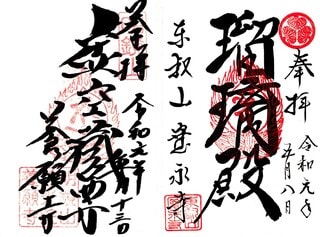 奉拝
令和元年
五月八日
瑠璃殿
東叡山 寛永寺
奉拝
令和元年
月十三日
虚空蔵
養願寺